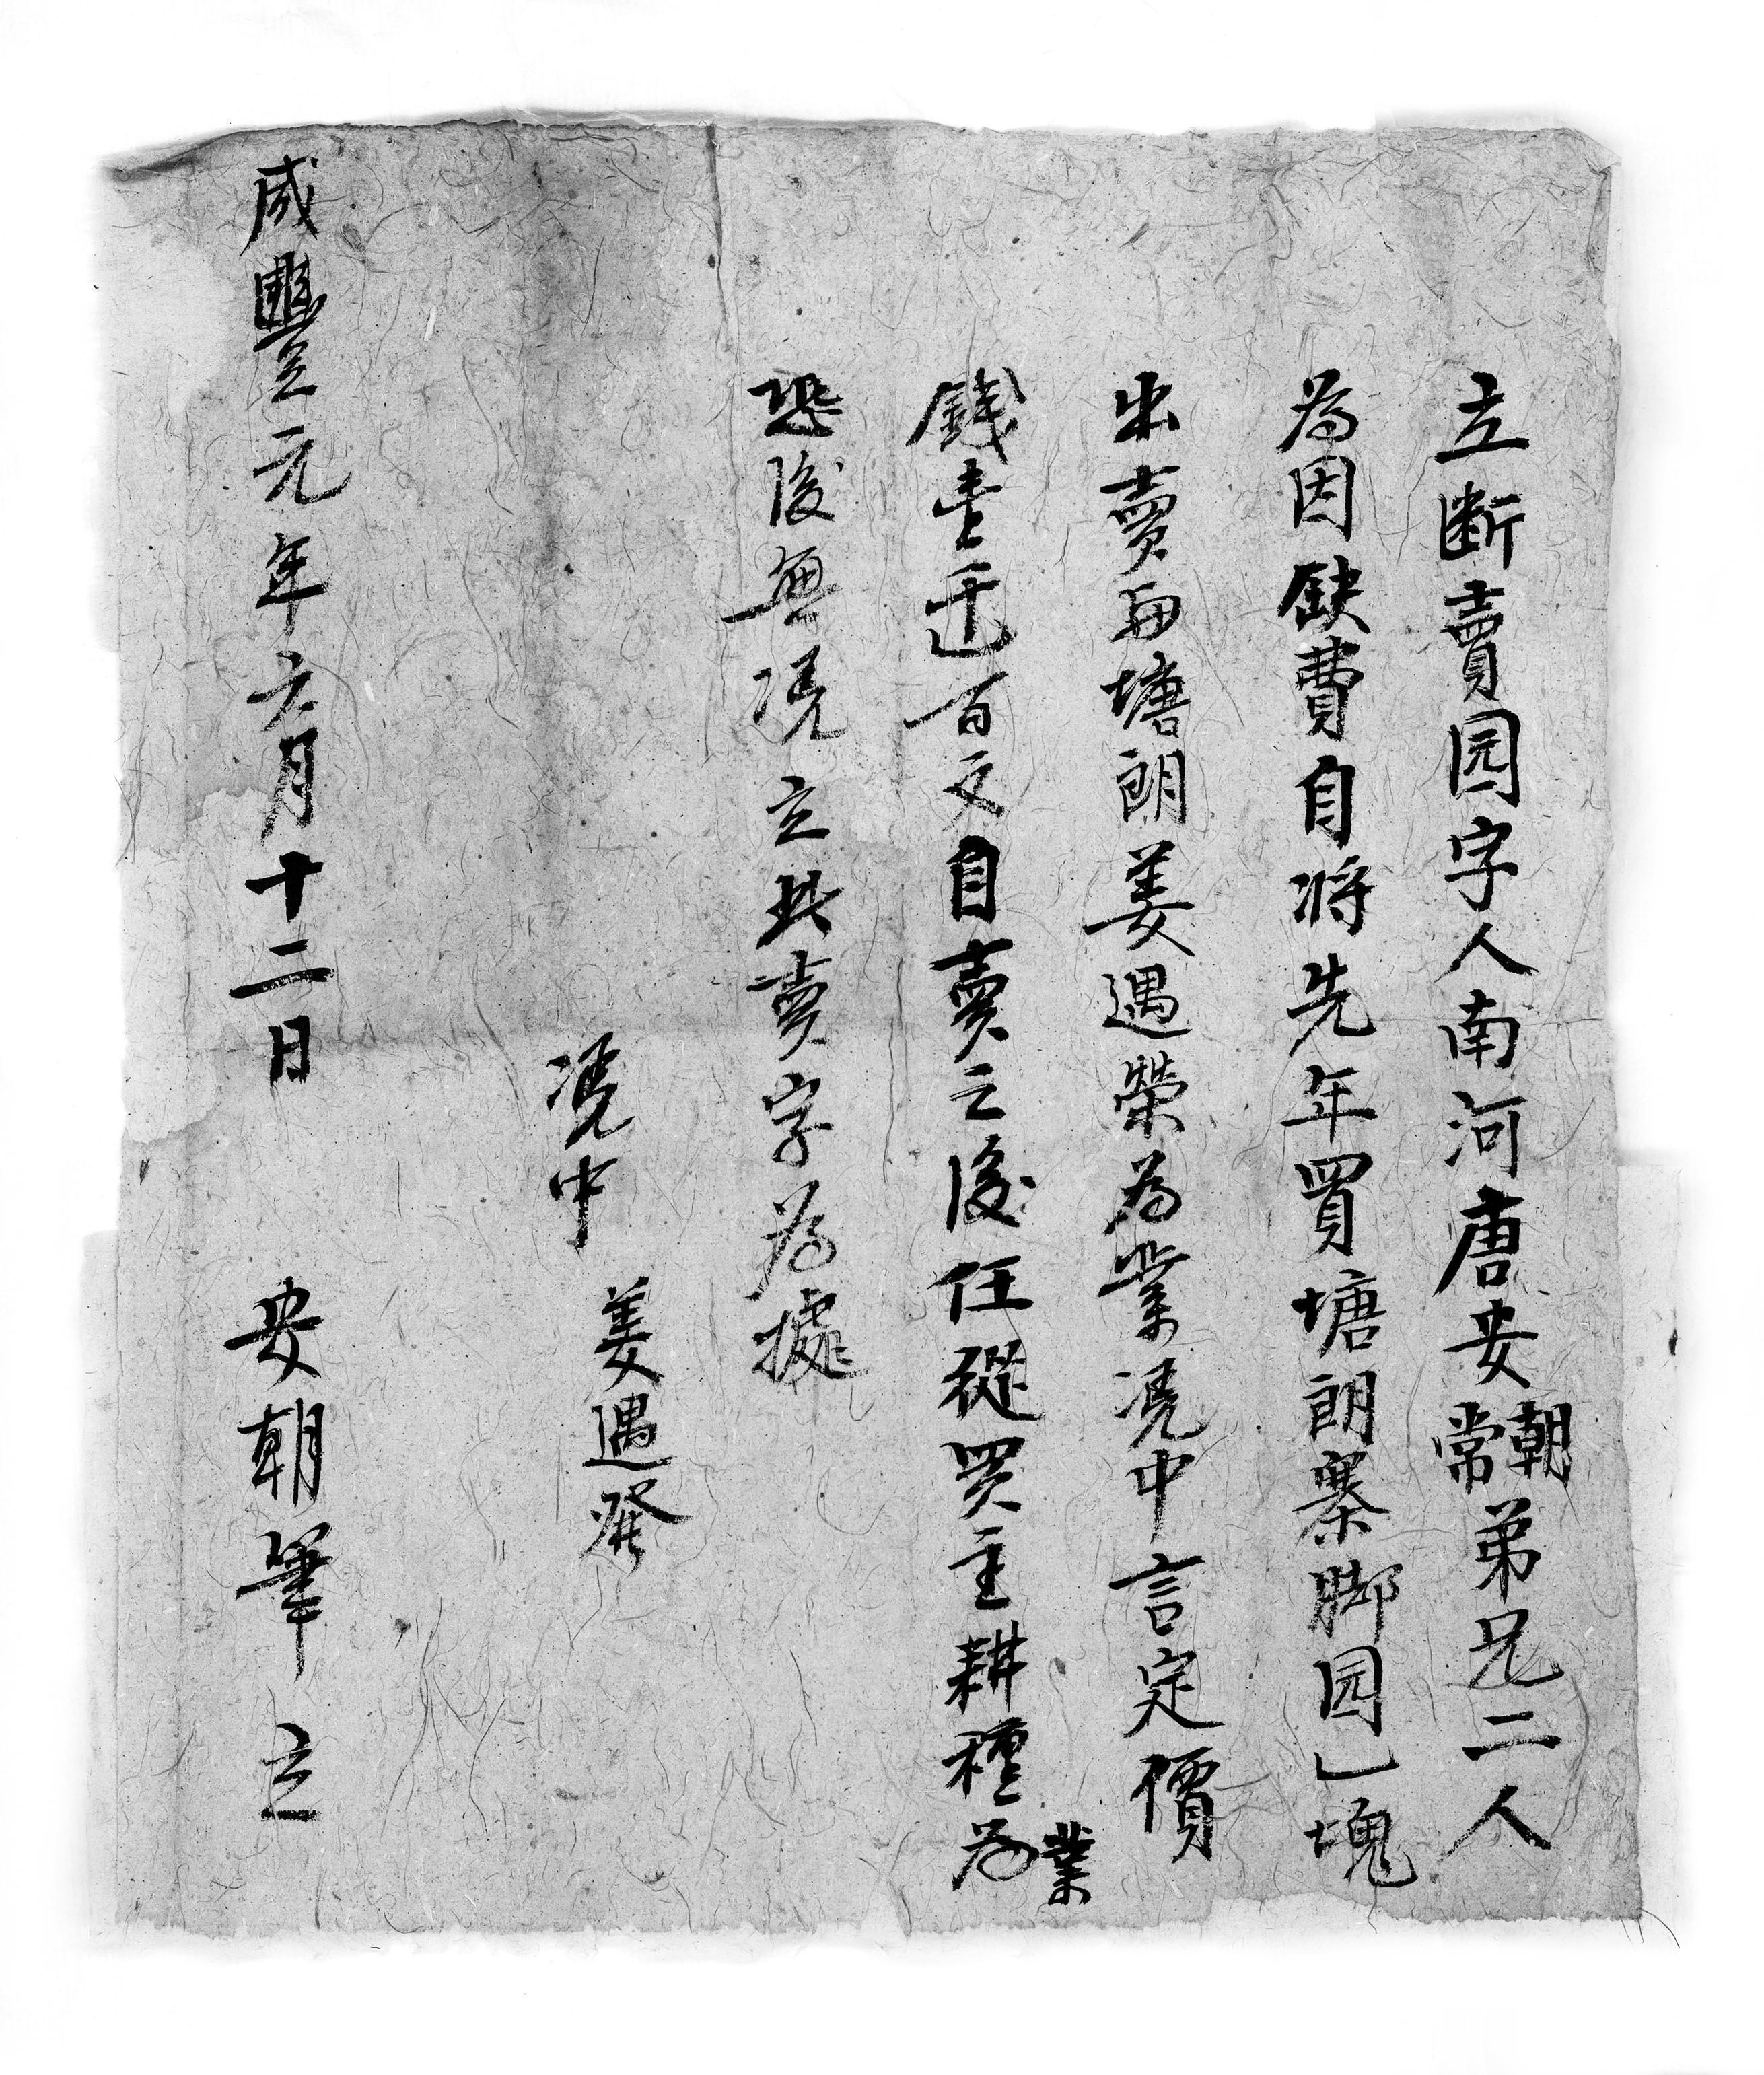 立断賣园字人南河唐安朝常弟兄二人
為因缺費自將先年買塘朗寨脚园乚塊
出賣与塘朗姜遇榮為業凴中言定價
錢壹千百文自賣之後任從買主耕種為業
恐後無凴立此賣字為據
凴中
姜遇發
咸豐元年六月十二日 安朝筆 立